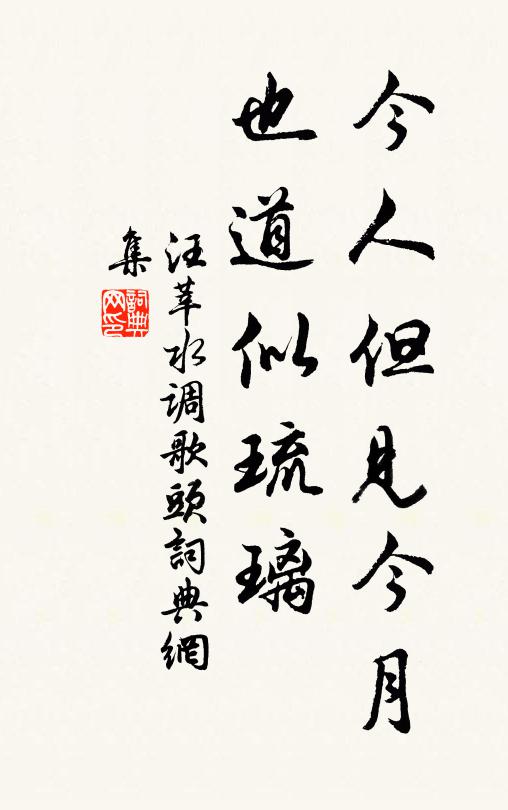 今人但見今月
也道似琉璃
汪莘水调歌頭詞典網
集
詞典网印